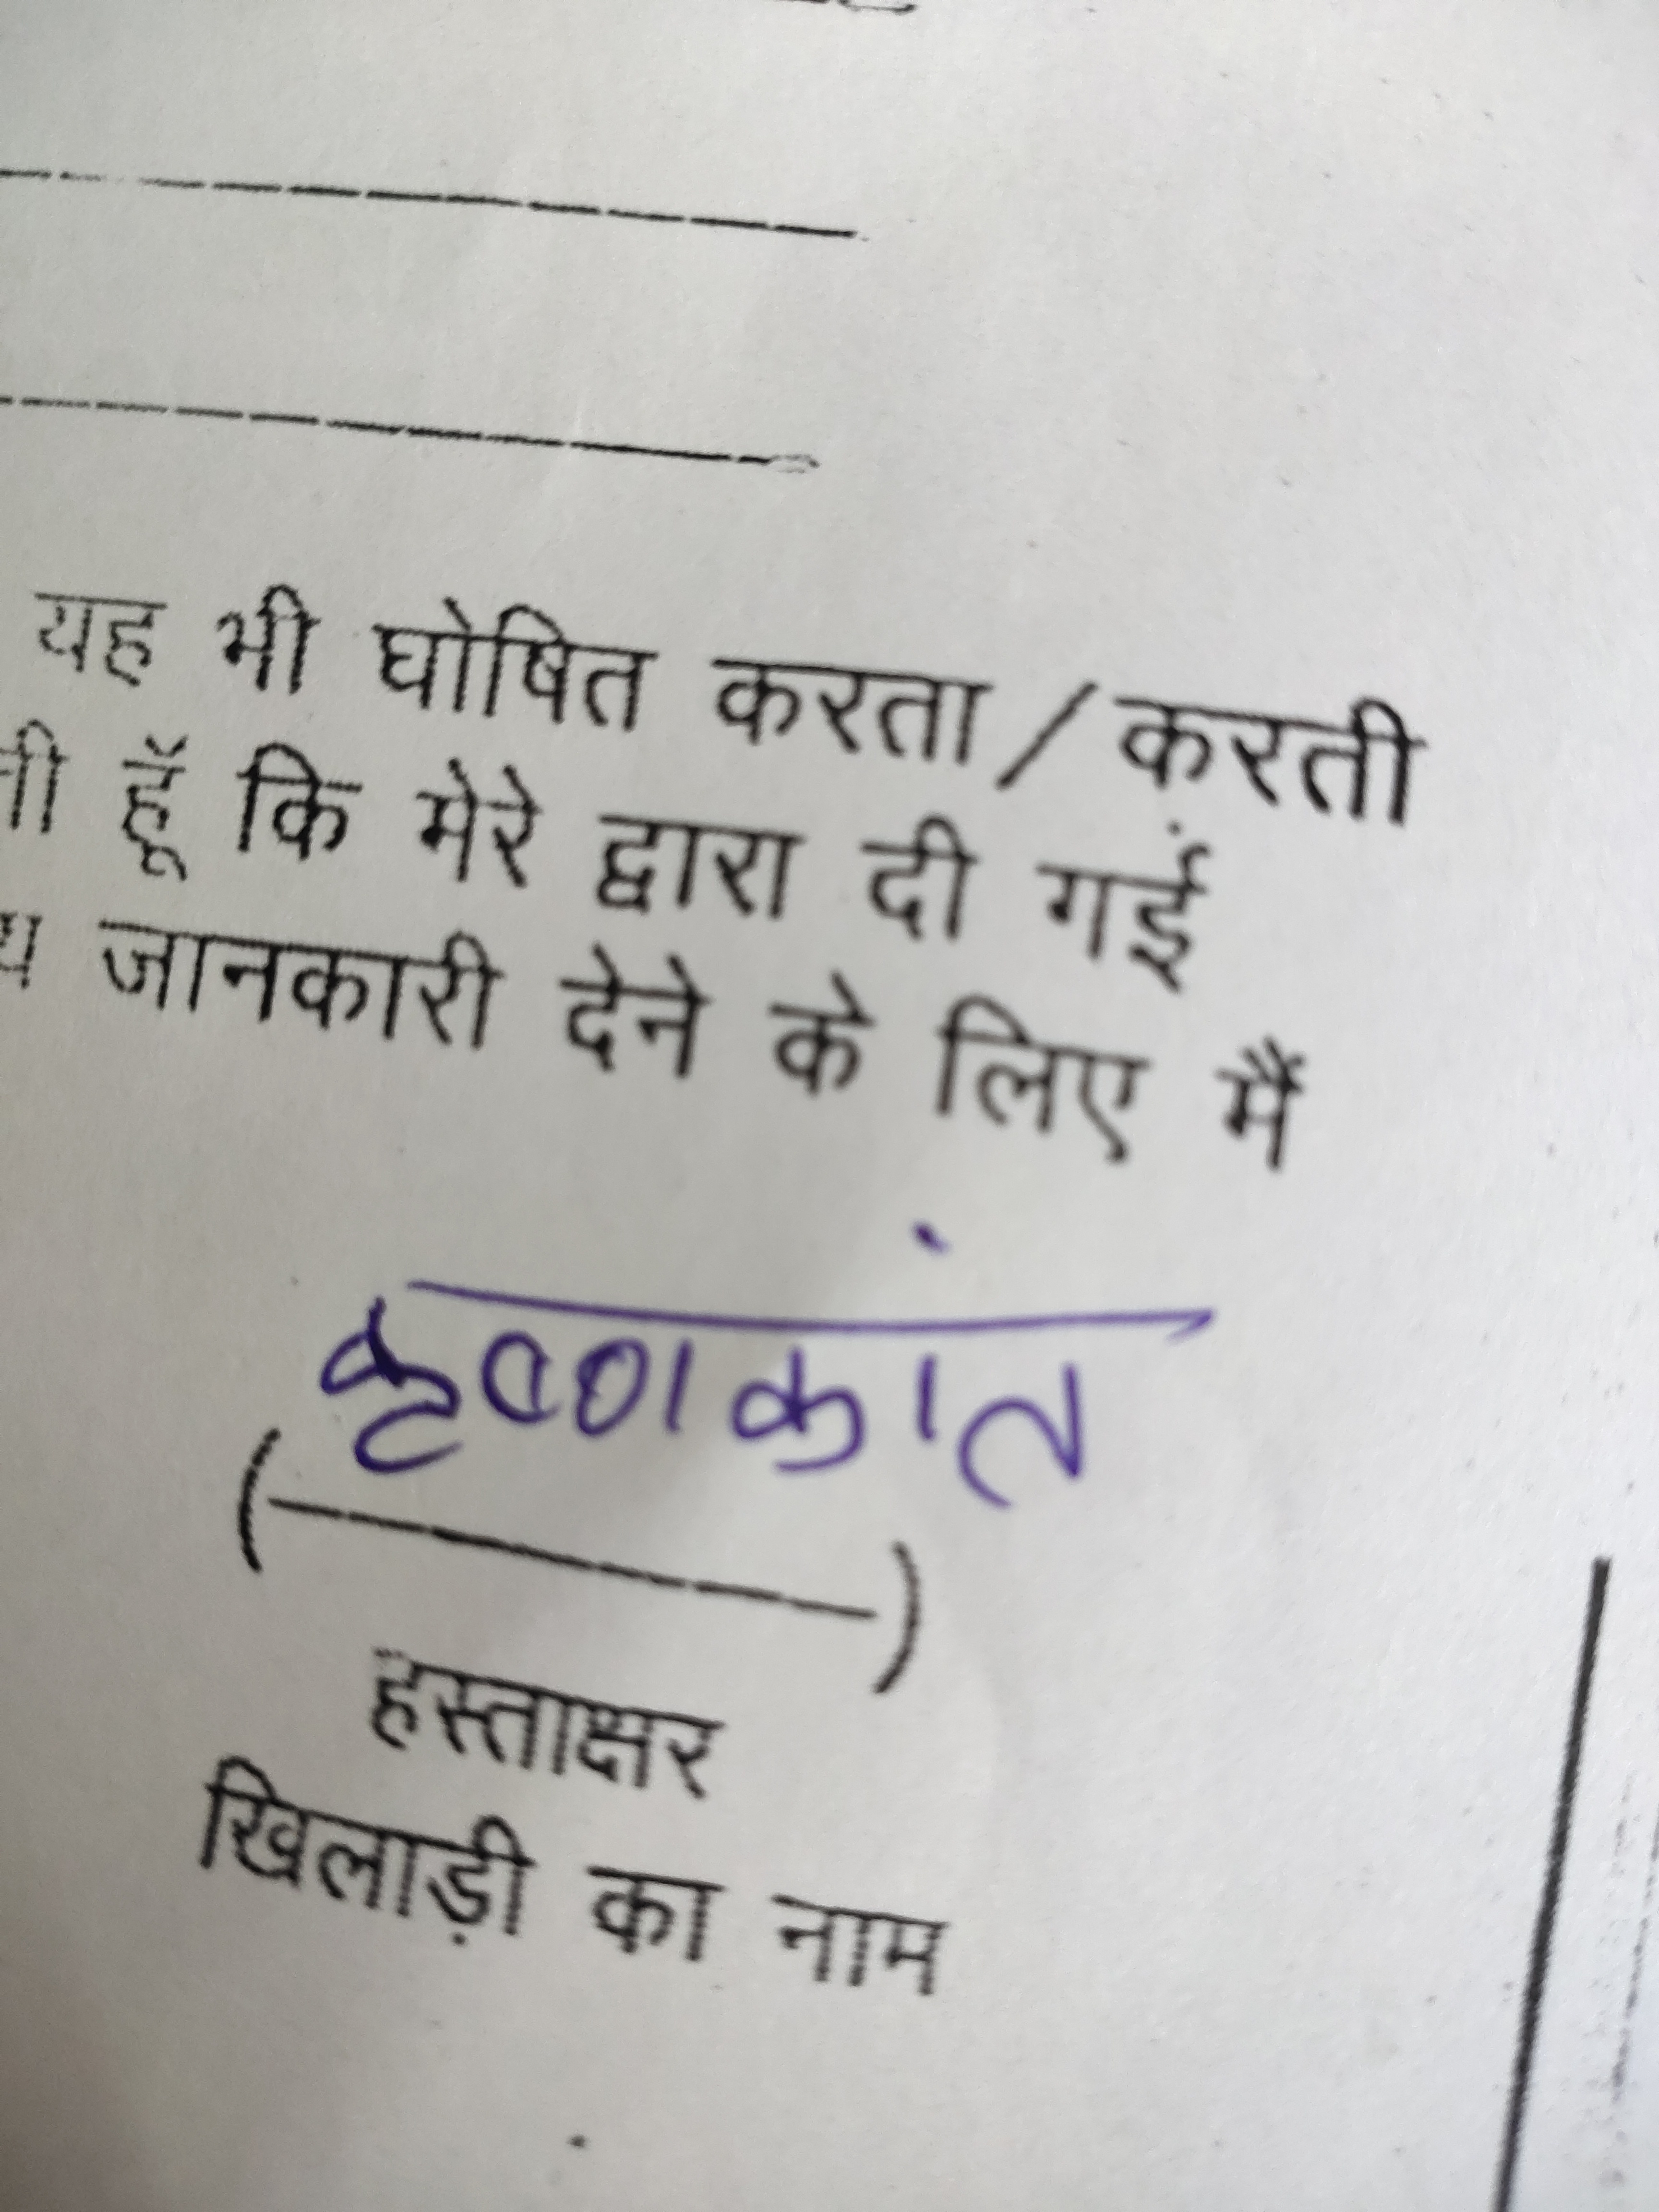 यह भी घोषित करता / करती
हूँ कि मेरे द्वारा दी गईं
जानकारी देने के लिए मैं
कृष्णकांत
(----------)
हस्ताक्षर
खिलाड़ी का नाम